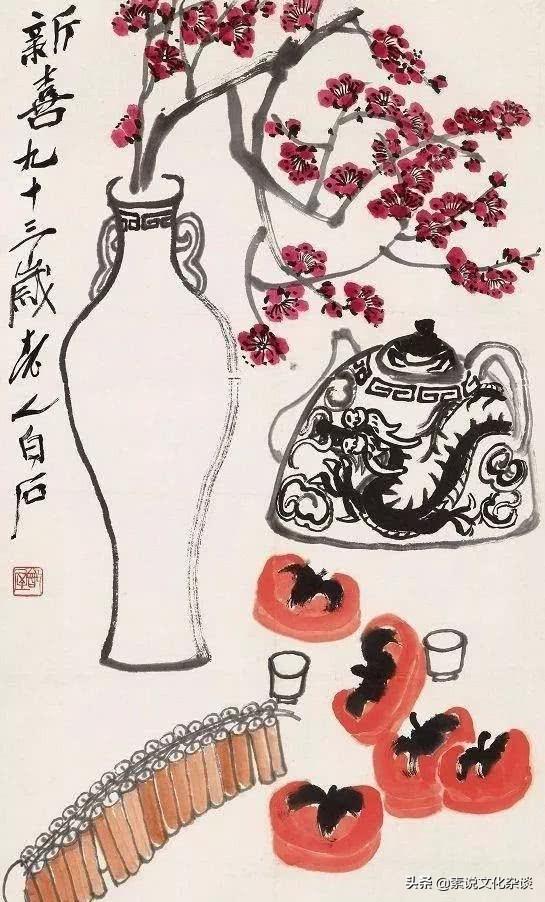 新喜九十三岁老人白石
头条 @素说文化杂谈